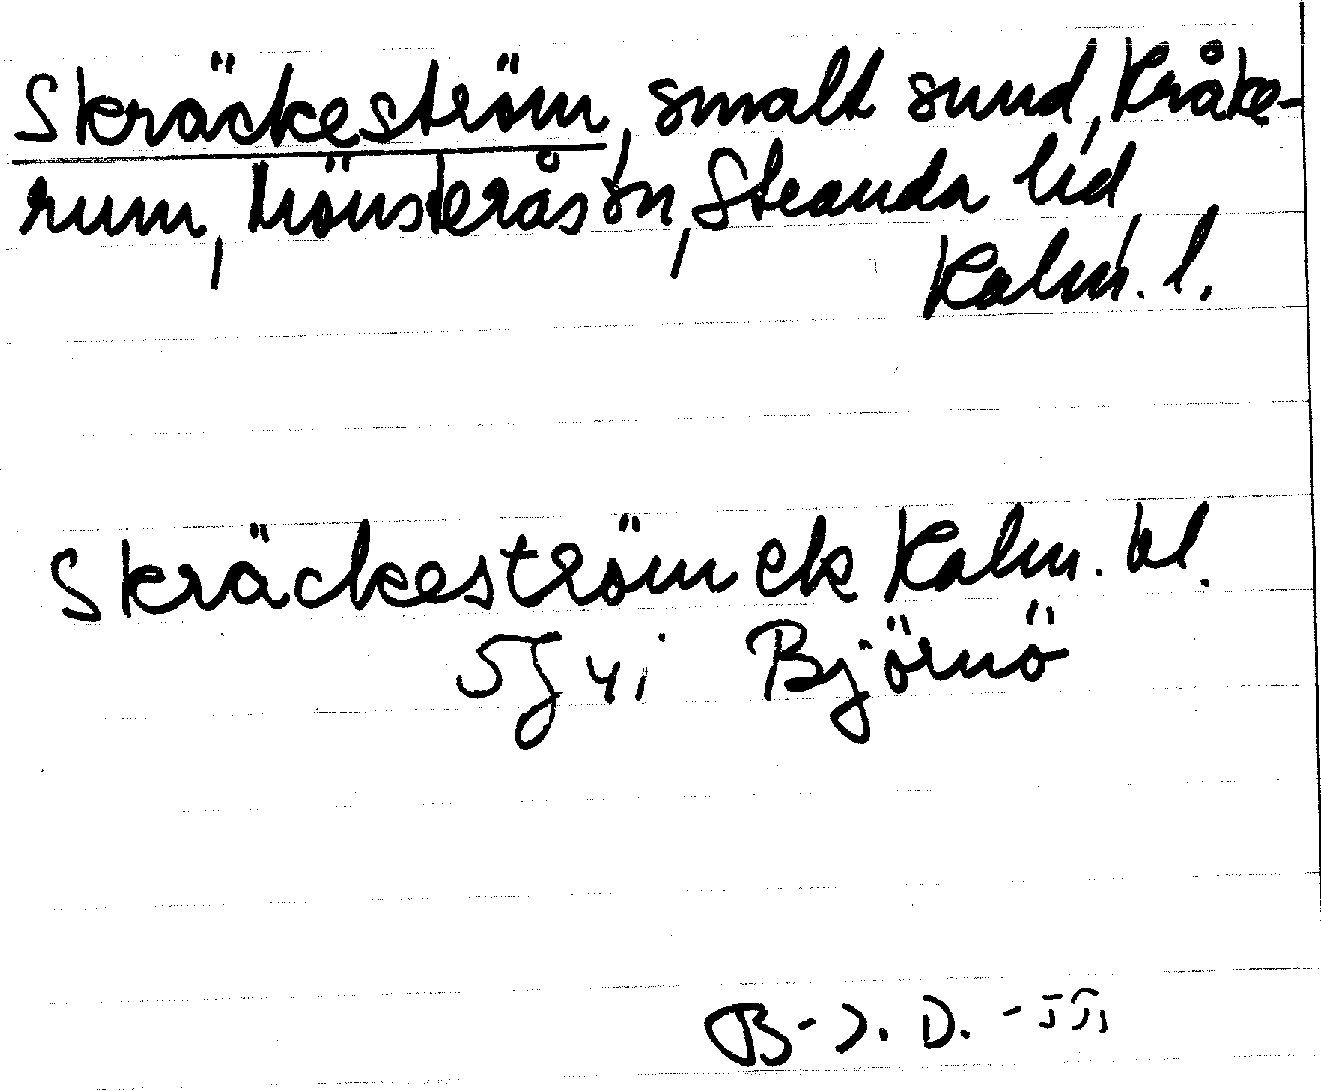 Skräckeström, smalt sund, Kråke-
rum, Mönsterås sn, Stranda hd,
Kalm. l.
Skräckeström ek Kalm. bl.
5G 4i Björnö
B-J. D. -